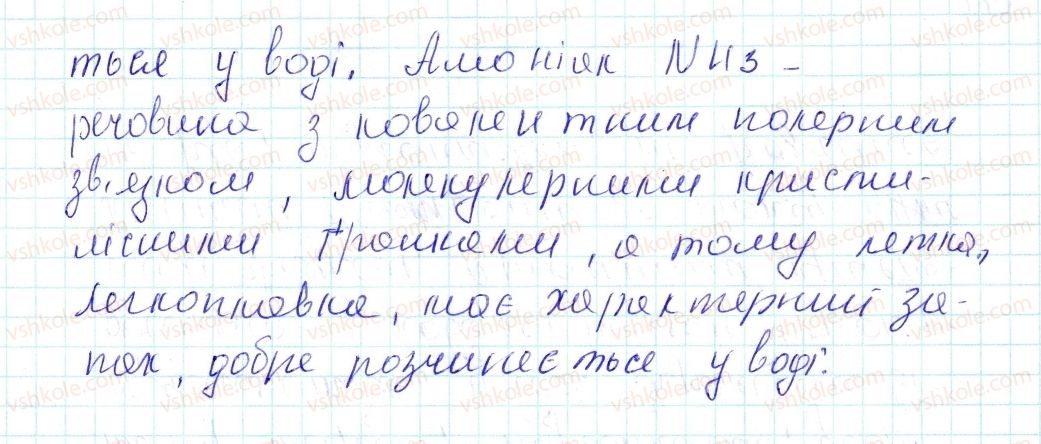 ться у воді. Амоніак NH3 -
речовина з ковалентним полярним
зв'язком, молекулярними криста-
лічними ґратками, а тому летка,
легкоплавка, має характерний за-
пах, добре розчиняється у воді.